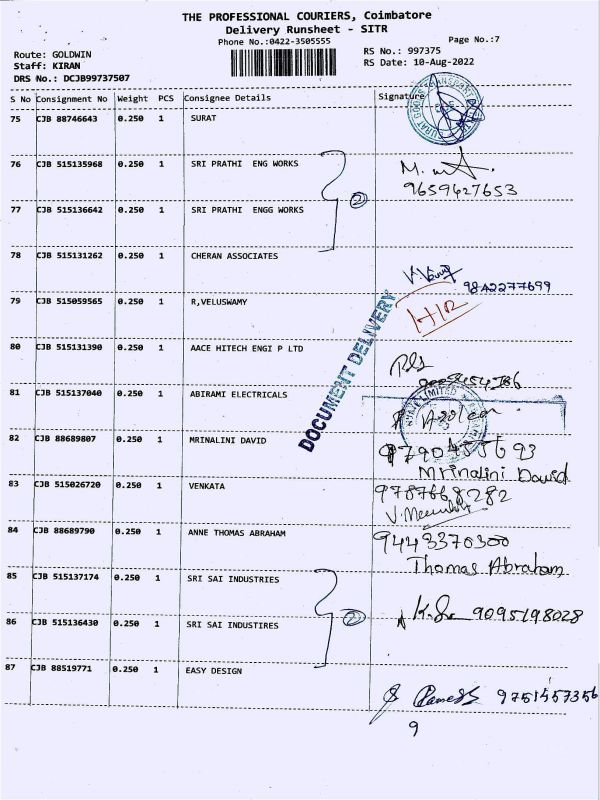 THE PROFESSIONAL COURIERS, Coimbatore
Delivery Runsheet - SITR
Phone No.:0422-3505555
Page No.:7
Route: GOLDWIN
RS No.: 997375
Staff: KIRAN
RS Date: 10-Aug-2022
DRS No.: DCJB99737507
S No Consignment No Weight PCS Consignee Details Signature
75 CJB 88746643 0.250 1 SURAT
76 CJB 515135968 0.250 1 SRI PRATHI ENG WORKS
9659427653
77 CJB 515136642 0.250 1 SRI PRATHI ENGG WORKS
2
78 CJB 515131262 0.250 1 CHERAN ASSOCIATES
9842277699
79 CJB 515059565 0.250 1 R,VELUSWAMY
DOCUMENT DELIVERY
80 CJB 515131390 0.250 1 AACE HITECH ENGI P LTD
81 CJB 515137040 0.250 1 ABIRAMI ELECTRICALS
82 CJB 88689807 0.250 1 MRINALINI DAVID
Mrinalini David
83 CJB 515026720 0.250 1 VENKATA
9787668282
84 CJB 88689790 0.250 1 ANNE THOMAS ABRAHAM
9443370300
Thomas Abraham
85 CJB 515137174 0.250 1 SRI SAI INDUSTRIES
86 CJB 515136430 0.250 1 SRI SAI INDUSTIRES
2
9095198028
87 CJB 88519771 0.250 1 EASY DESIGN
9751557356
9